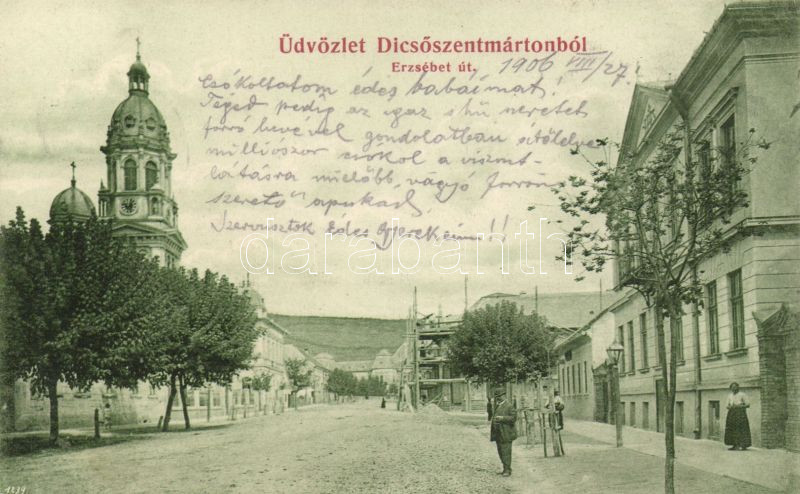 Üdvözlet Dicsőszentmártonból
Erzsébet út.
1906 VIII/27
Csókoltatom édes babáimat!
Téged pedig az igaz hű szeretet
forró hevével gondolatban átölelve
milliószor csókol a viszont-
látásra mielőbb vágyó forrón
szerető apukád,
Szervusztok édes Gyerekeim!!
darabanth
1239